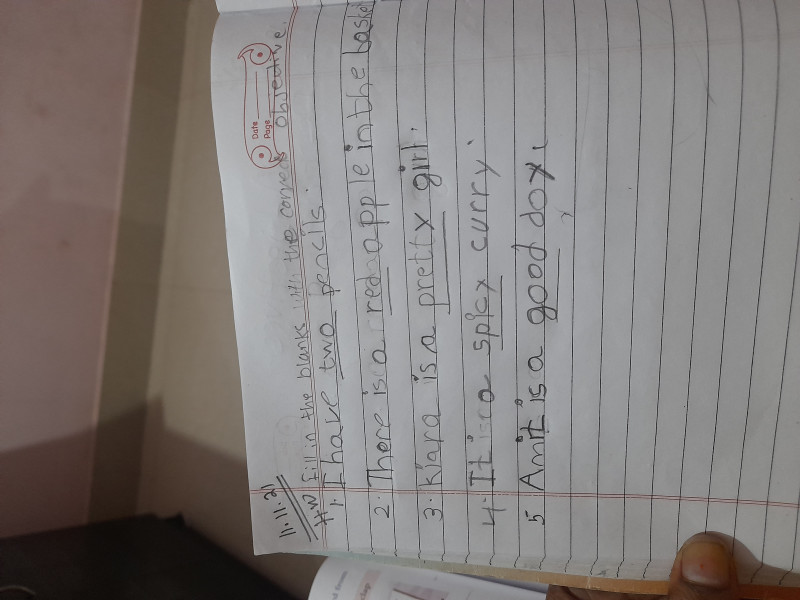 Date
Page
11.11.21
H.W Fill in the blanks with the correct objective.
1. I have two pencils.
2. There is a red apple in the basket
3. Kiara is a pretty girl.
4. It is a spicy curry.
5 Amit is a good doy.